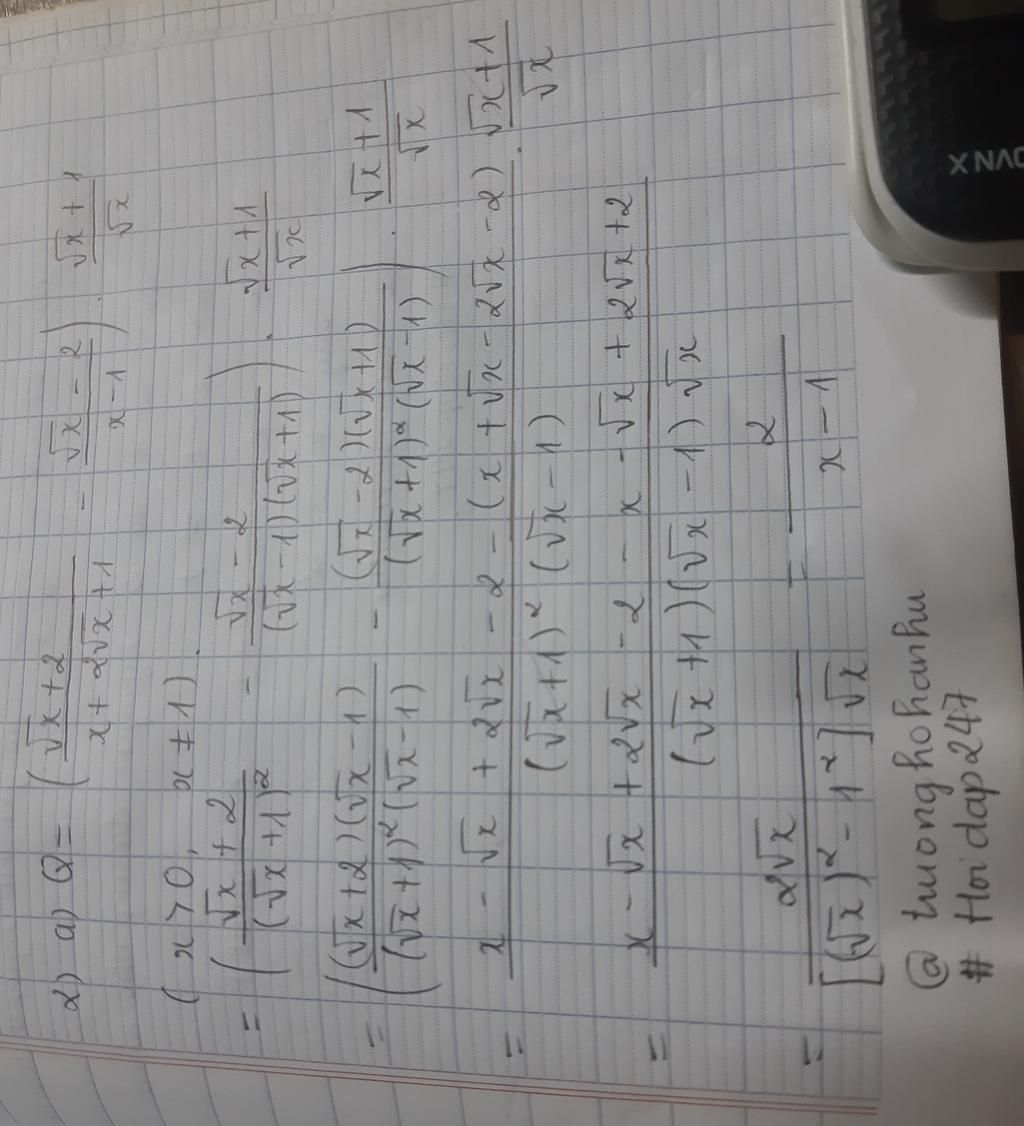 2) a) Q = ( (√x + 2)/(x + 2√x + 1) - (√x - 2)/(x - 1) ) . (√x + 1)/√x
( x > 0, x ≠ 1 ).
= ( (√x + 2)/(√x + 1)² - (√x - 2)/((√x - 1)(√x + 1)) ) . (√x + 1)/√x
= ( ((√x + 2)(√x - 1))/((√x + 1)²(√x - 1)) - ((√x - 2)(√x + 1))/((√x + 1)²(√x - 1)) ) . (√x + 1)/√x
= (x - √x + 2√x - 2 - (x + √x - 2√x - 2))/((√x + 1)²(√x - 1)) . (√x + 1)/√x
= (x - √x + 2√x - 2 - x - √x + 2√x + 2)/((√x + 1)(√x - 1)√x)
= 2√x/([(√x)² - 1²]√x) = 2/(x - 1)
@ truonghohanhu
# Hoidap247
XNVO